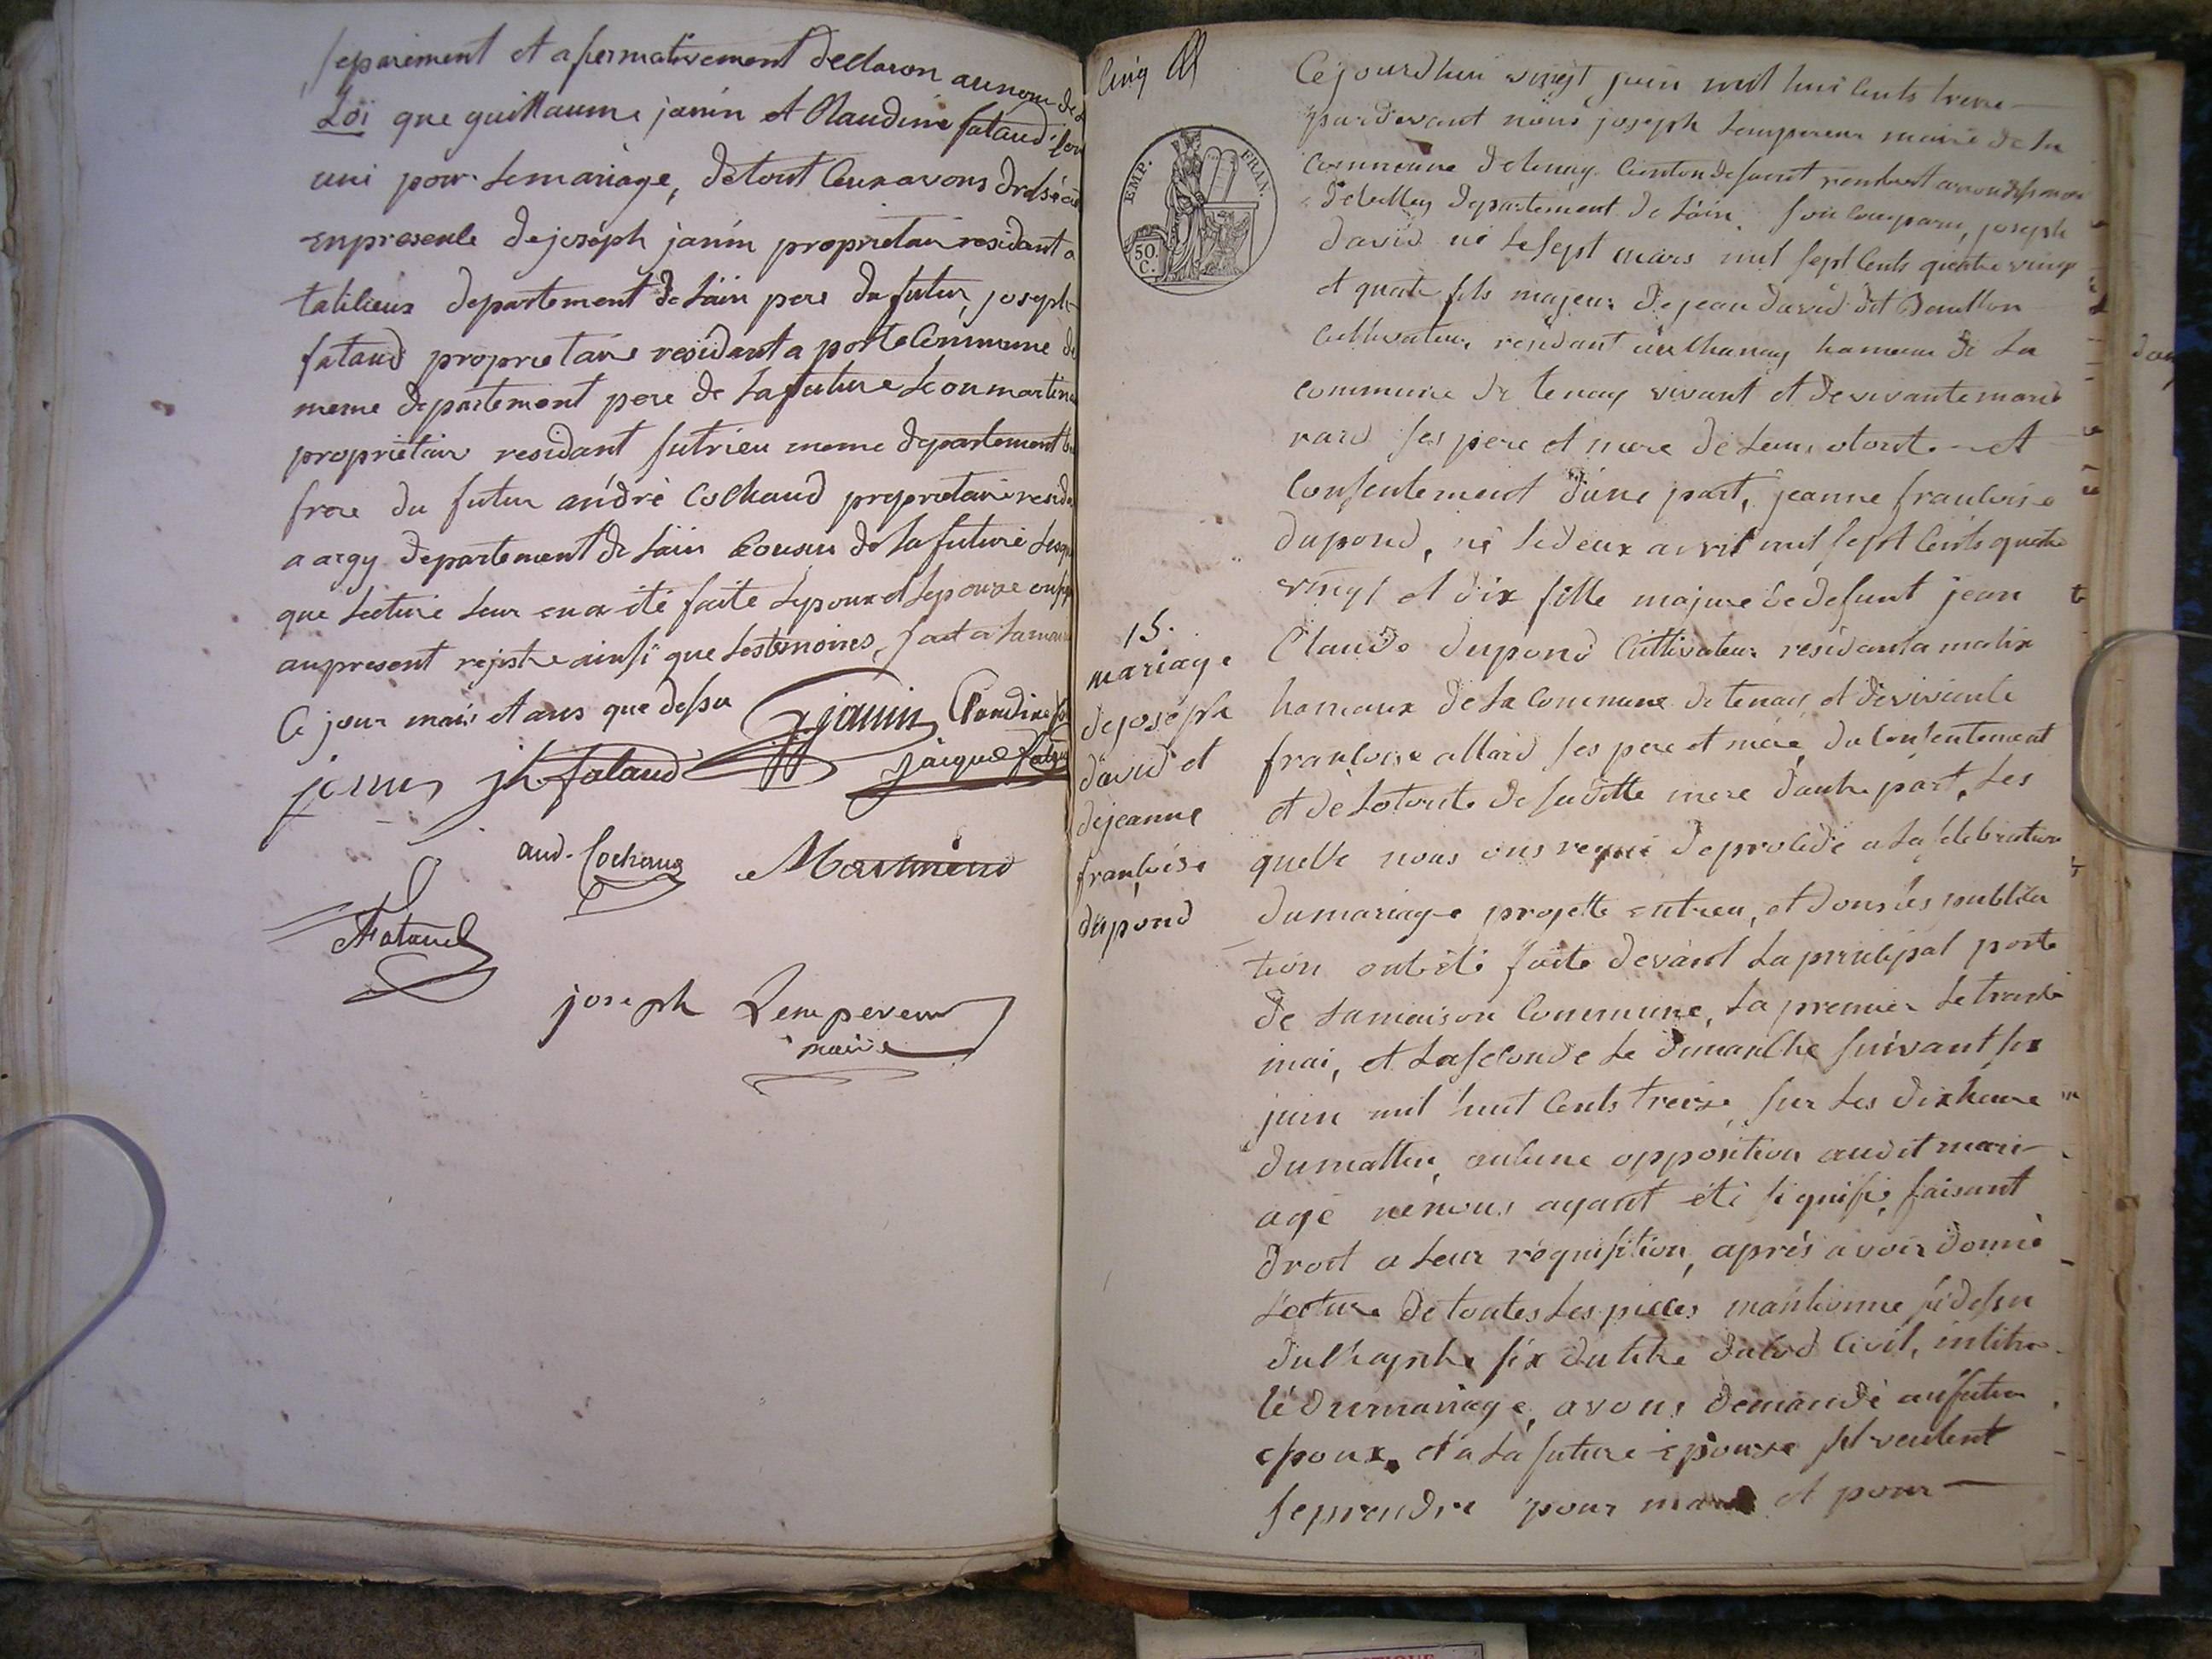 separément et afermativement declaron aunom de
Loi que guillaume janin et Claudine fataud son
uni pour Lemariage, detout Ceux avons dressé
enpresence dejoseph janin proprietair residant a
talilieux departement de Lain pere du futur, joseph
fataud proprietaire residant a porte Commune de
meme departement pere de La future Leon martin
proprietair residant sutrieu meme departement
frere du futur andré Cochaud proprietair resid
a argy departement de Lain Cousin de La future
que Lecture Leur en a été faite Lepoux et Lepouze
aupresent rejistre ainsi que Lestemoires, fait a
Ce jour mois et ans que dessu
janin Claudine
janin jh fataud jaique
and. Cochaud
fataud
joseph Lempereur
maire
Cinq
EMP. FRAN.
50. C.
15.
mariage
dejoseph
david et
dejeanne
francoise
dupond
Cejourdhui vingt juin mil huit Cents treze
pardevant nous joseph Lempereur maire de La
Commune detenay Canton de saint rembert arondissemen
debelley departement de Lain. son Comparu, joseph
david né Le sept mars mil sept Cents quatre vingt
et quatre fils majeur dejean david dit Bouillon
Cultivateur residant au Chanay hameau de La
commune de tenay vivant et devivante marie
ses pere et mere de Leur otorite et
Consentement d'une part, jeanne francoise
dupond, né Ledeux avril mil sept Cents quatre
vingt et dix fille majeure dedefunt jean
Claude dupond Cultivateur residant a malix
hameaux de La Commune detenay et devivante
francoise allard ses pere et mere, du Consentement
et de Lotorite de sudite mere d'autre part, Les
quelle nous ons requi deprocede a La Celebration
dumariage projette entreu, et dons les publica
tion onteté faite devant La principal porte
de Lamaison Commune, La premier Le trante
mai, et La seconde Le dimanche suivant six
juin mil huit Cents treize, sur Les dix heure
dumattin, aucune opposition audit mari
age nenous ayant été signifié, faisant
droit a Leur requisition, aprés avoir donné
Lecture de toutes Les pieces mantionne sidessu
duChapitre six dutitre du Cod Civil, intitu
lé dumariage, avons demandé aufutur
epoux, et a La future epouse sil veulent
seprendre pour mari et pour